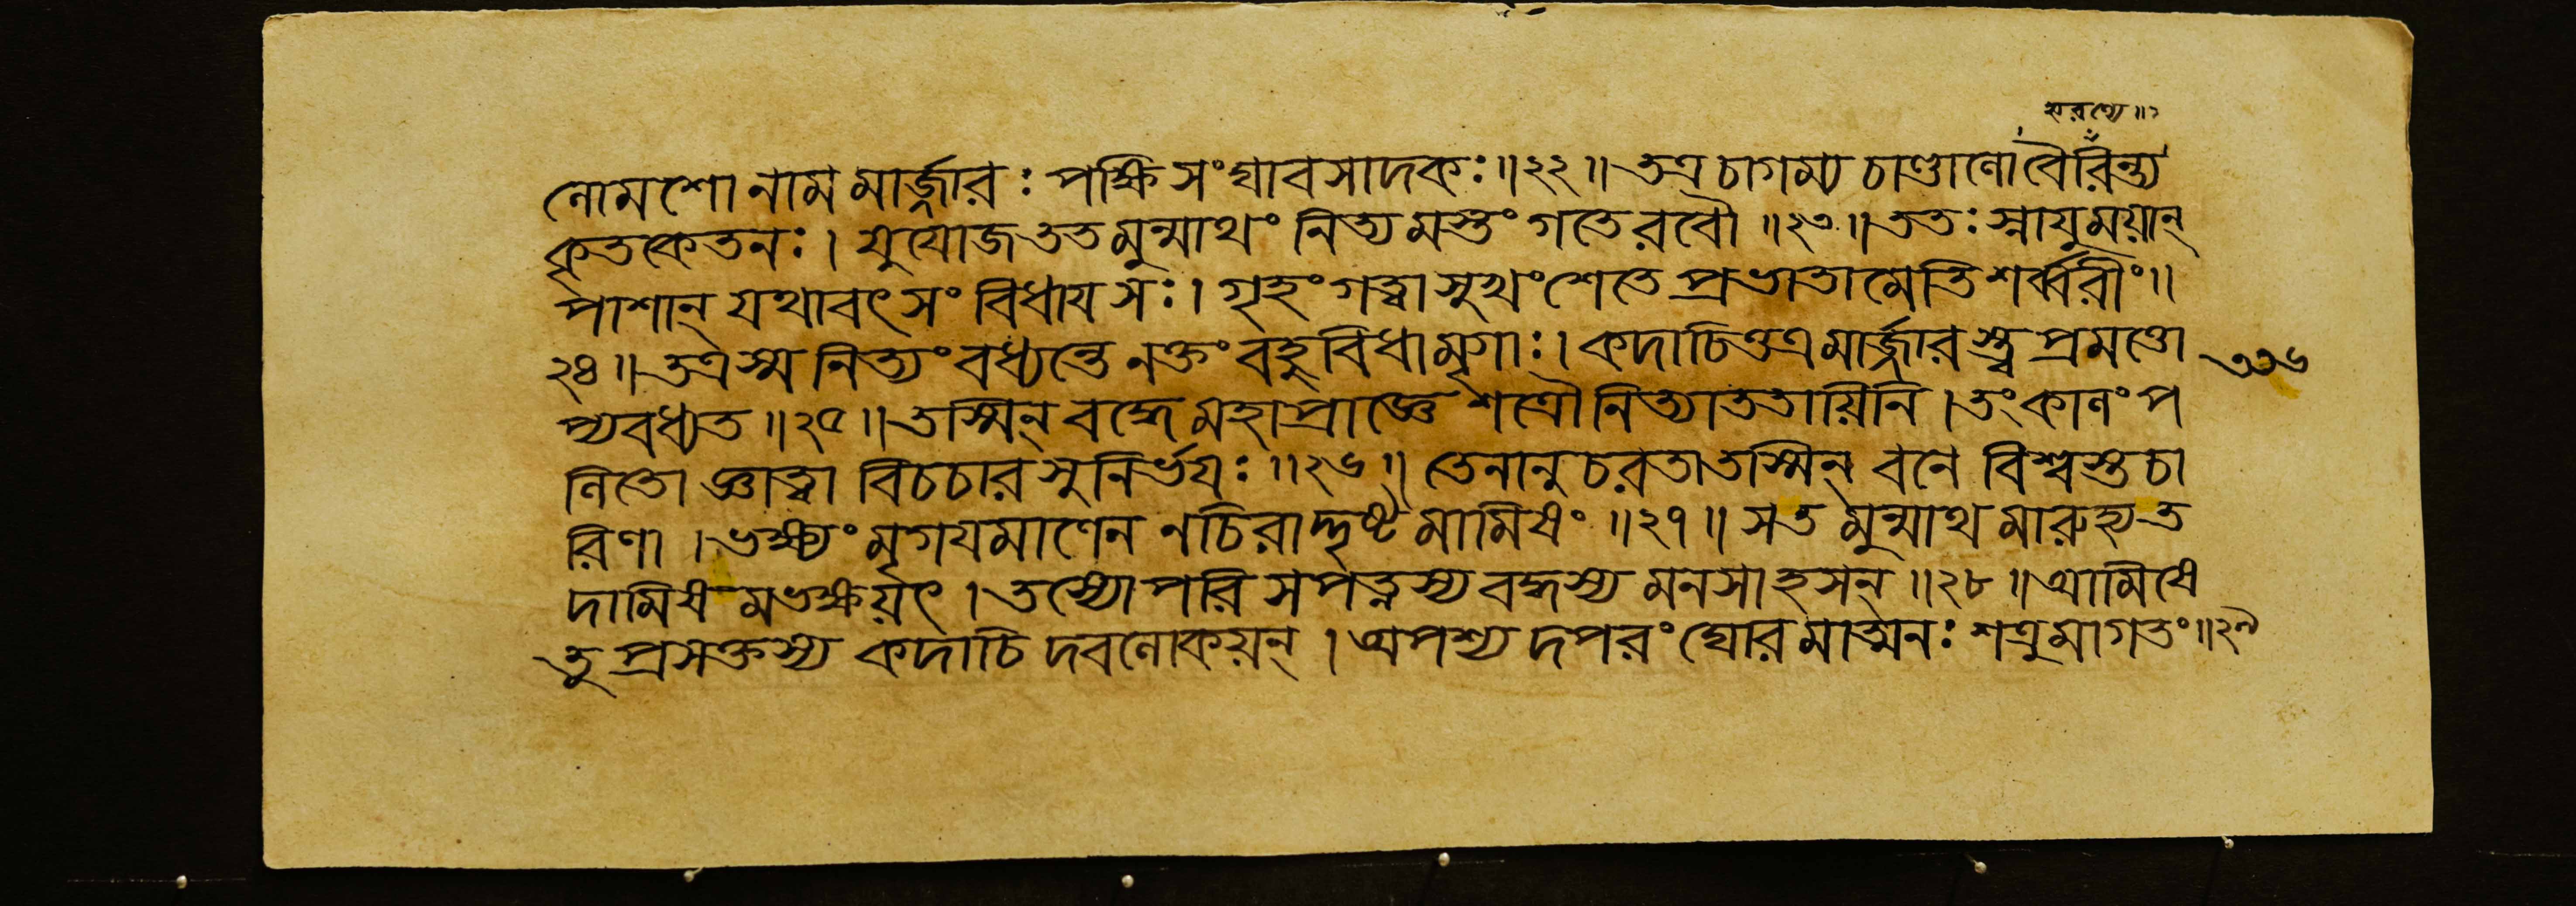 হ্যরণ্যে॥১
লোমশো নাম মার্জ্জারঃ পক্ষিসংঘাবসাদকঃ॥২২॥ তত্র চাগম্য চাণ্ডালো বৈরিন্ত্য
কৃতকেতনঃ। যুযোজ তত মুন্মাথং নিত্যমস্তং গতে রবৌ॥২৩॥ ততঃ স্নায়ুময়ান্
পাশান্ যথাবৎ সংবিধায সঃ। গৃহং গত্বা সুখং শেতে প্রভাতামেতি শর্ব্বরীং॥
২৪॥ তত্র স্ম নিত্যং বধ্যন্তে নক্তং বহুবিধা মৃগাঃ। কদাচিত্তত্র মার্জ্জারস্ত্ব প্রমত্তো
৩৩৬
প্যবধ্যত॥২৫॥ তস্মিন্ বদ্ধে মহাপ্রাজ্ঞে শত্রৌ নিত্যাততায়িনি। তং কালং প
লিতো জ্ঞাত্বা বিচচার সুনির্ভযঃ॥২৬॥ তেনানুচরতা তস্মিন্ বনে বিশ্বস্তচা
রিণা। ভক্ষ্যং মৃগযমাণেন নচিরাদ্দৃষ্টমামিষং॥২৭॥ স ত মুন্মাথমারুহ্য ত
দামিষমভক্ষয়ৎ। তস্যোপরি সপত্নস্য বদ্ধস্য মনসা হসন্॥২৮॥ আমিষে
তু প্রসক্তস্য কদাচিদবলোকয়ন্। অপশ্যদপরং ঘোরমাত্মনঃ শত্রুমাগতং॥২৯